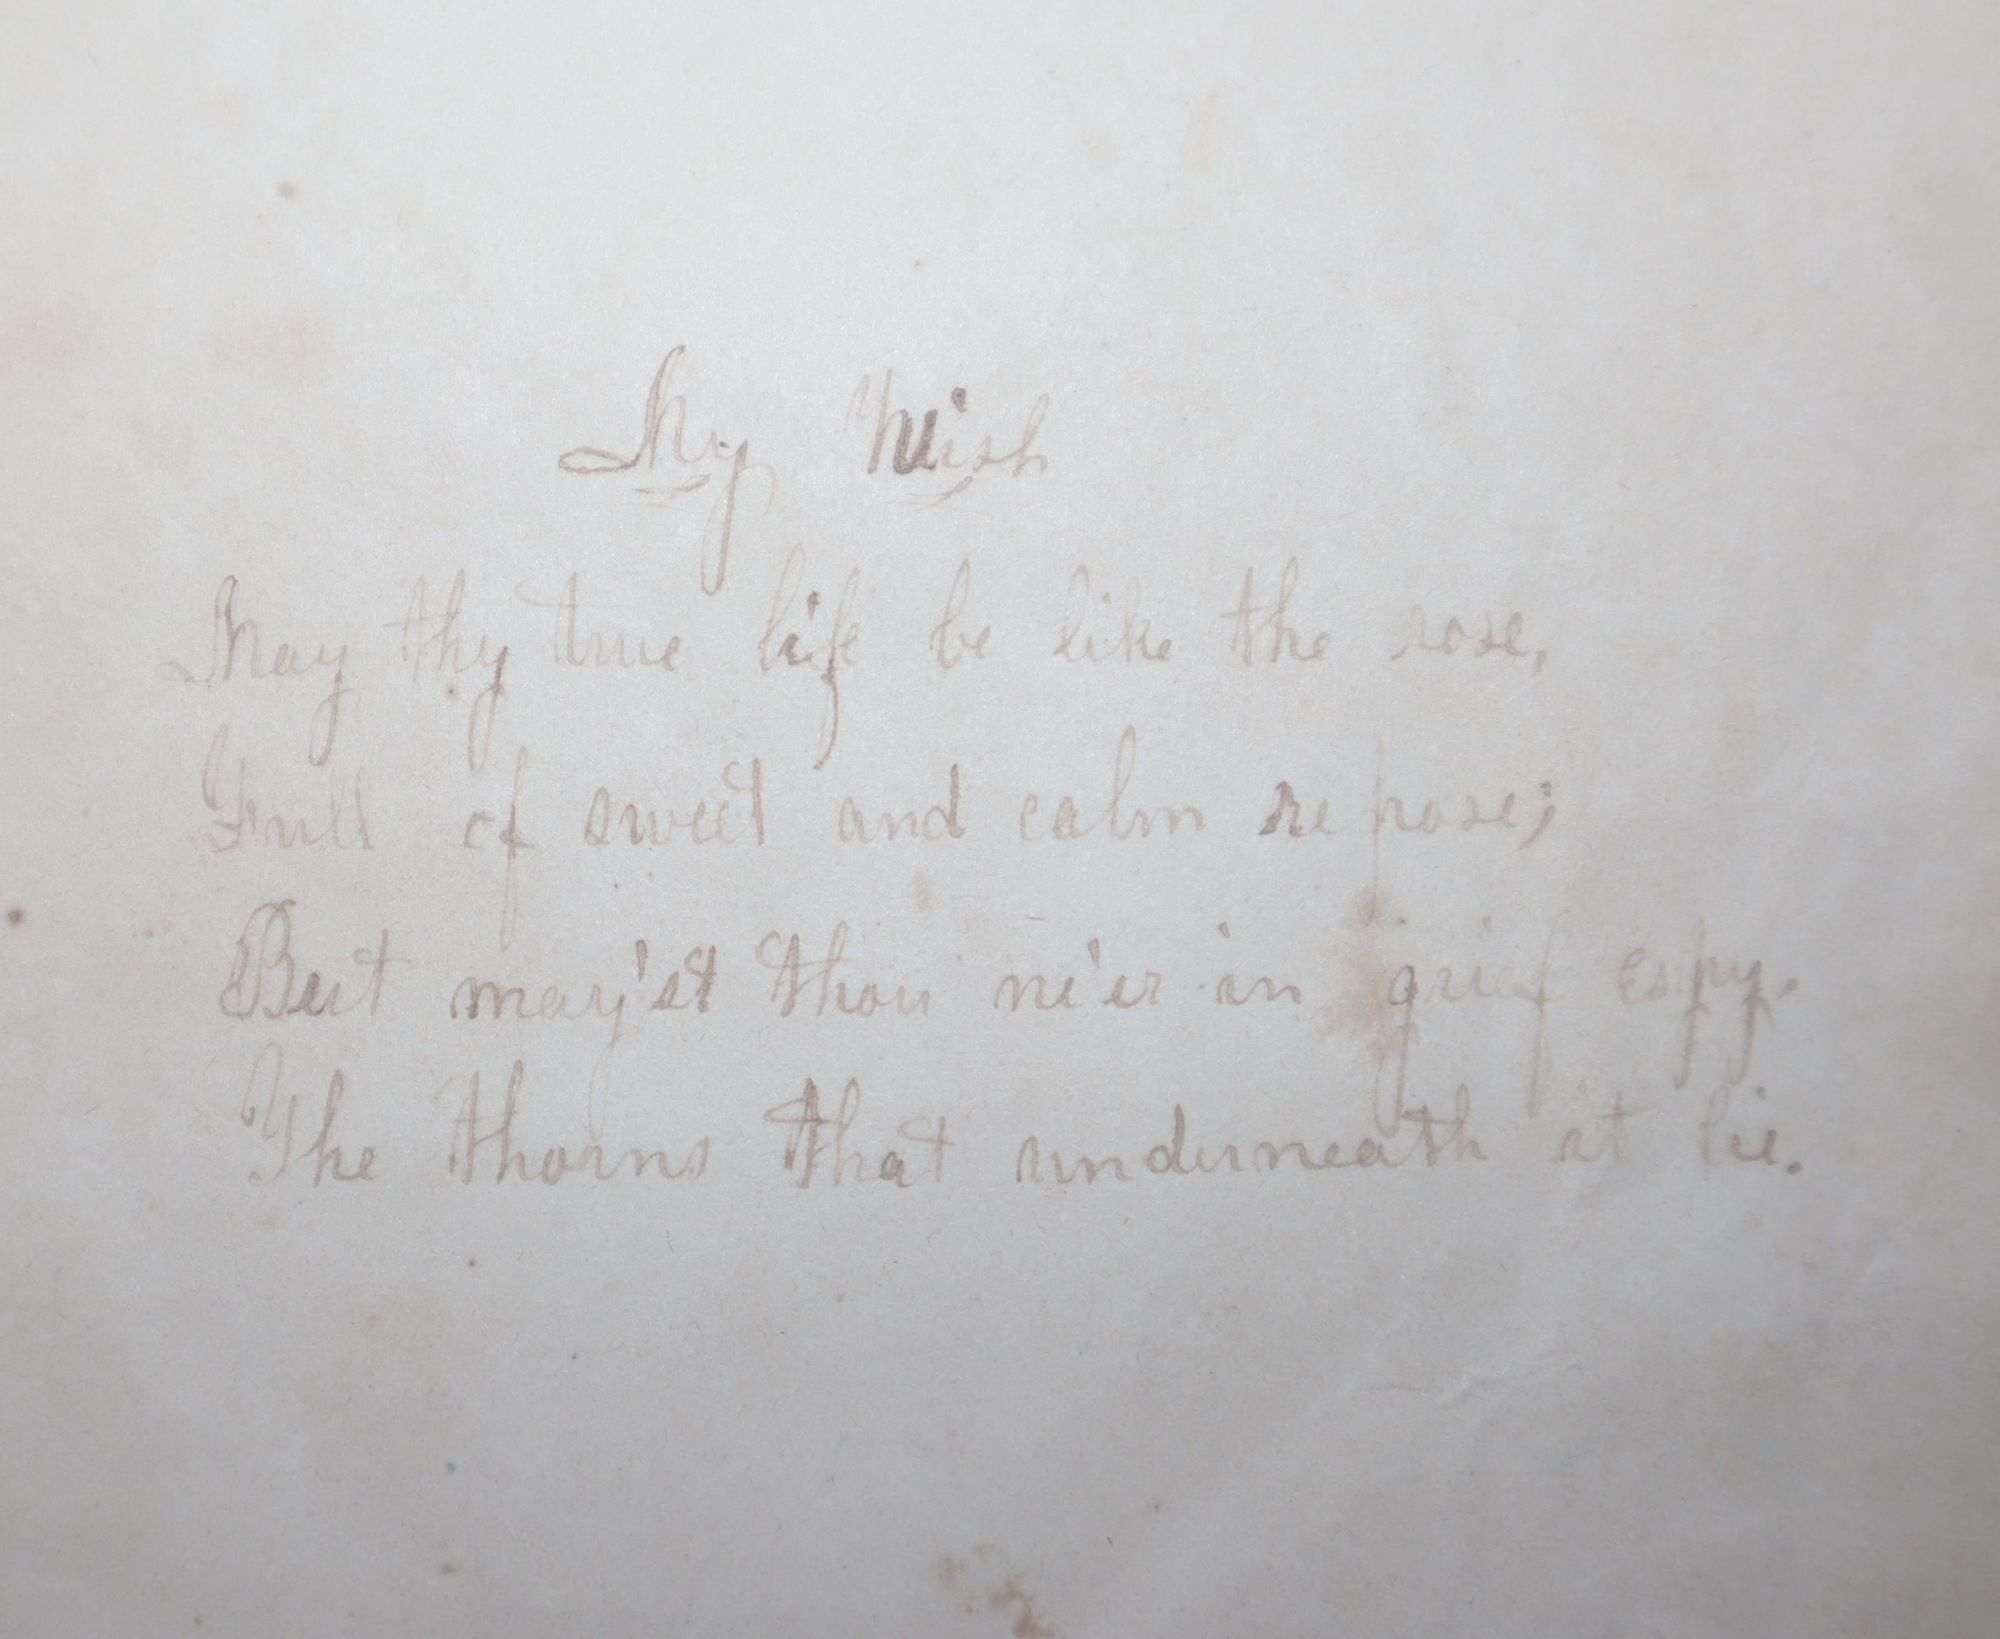 My Wish
May thy true life be like the rose,
Full of sweet and calm repose;
But may'st thou ne'er in grief espy.
The thorns that underneath it lie.